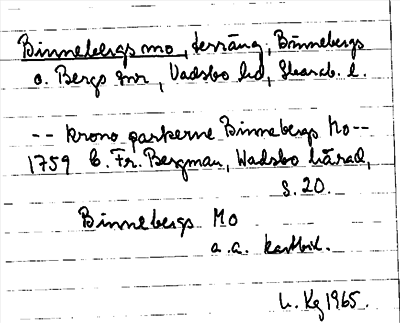 Binnebergs mo, terräng, Binnebergs
o. Bergs snr, Vadsbo hd, Skarab. l.
-- Krono parkerne Binnebergs Mo--
1759 C. Fr. Bergman, Wadsbo härad,
S. 20.
Binnebergs Mo
a.a. kartbil.
Kg 1965.